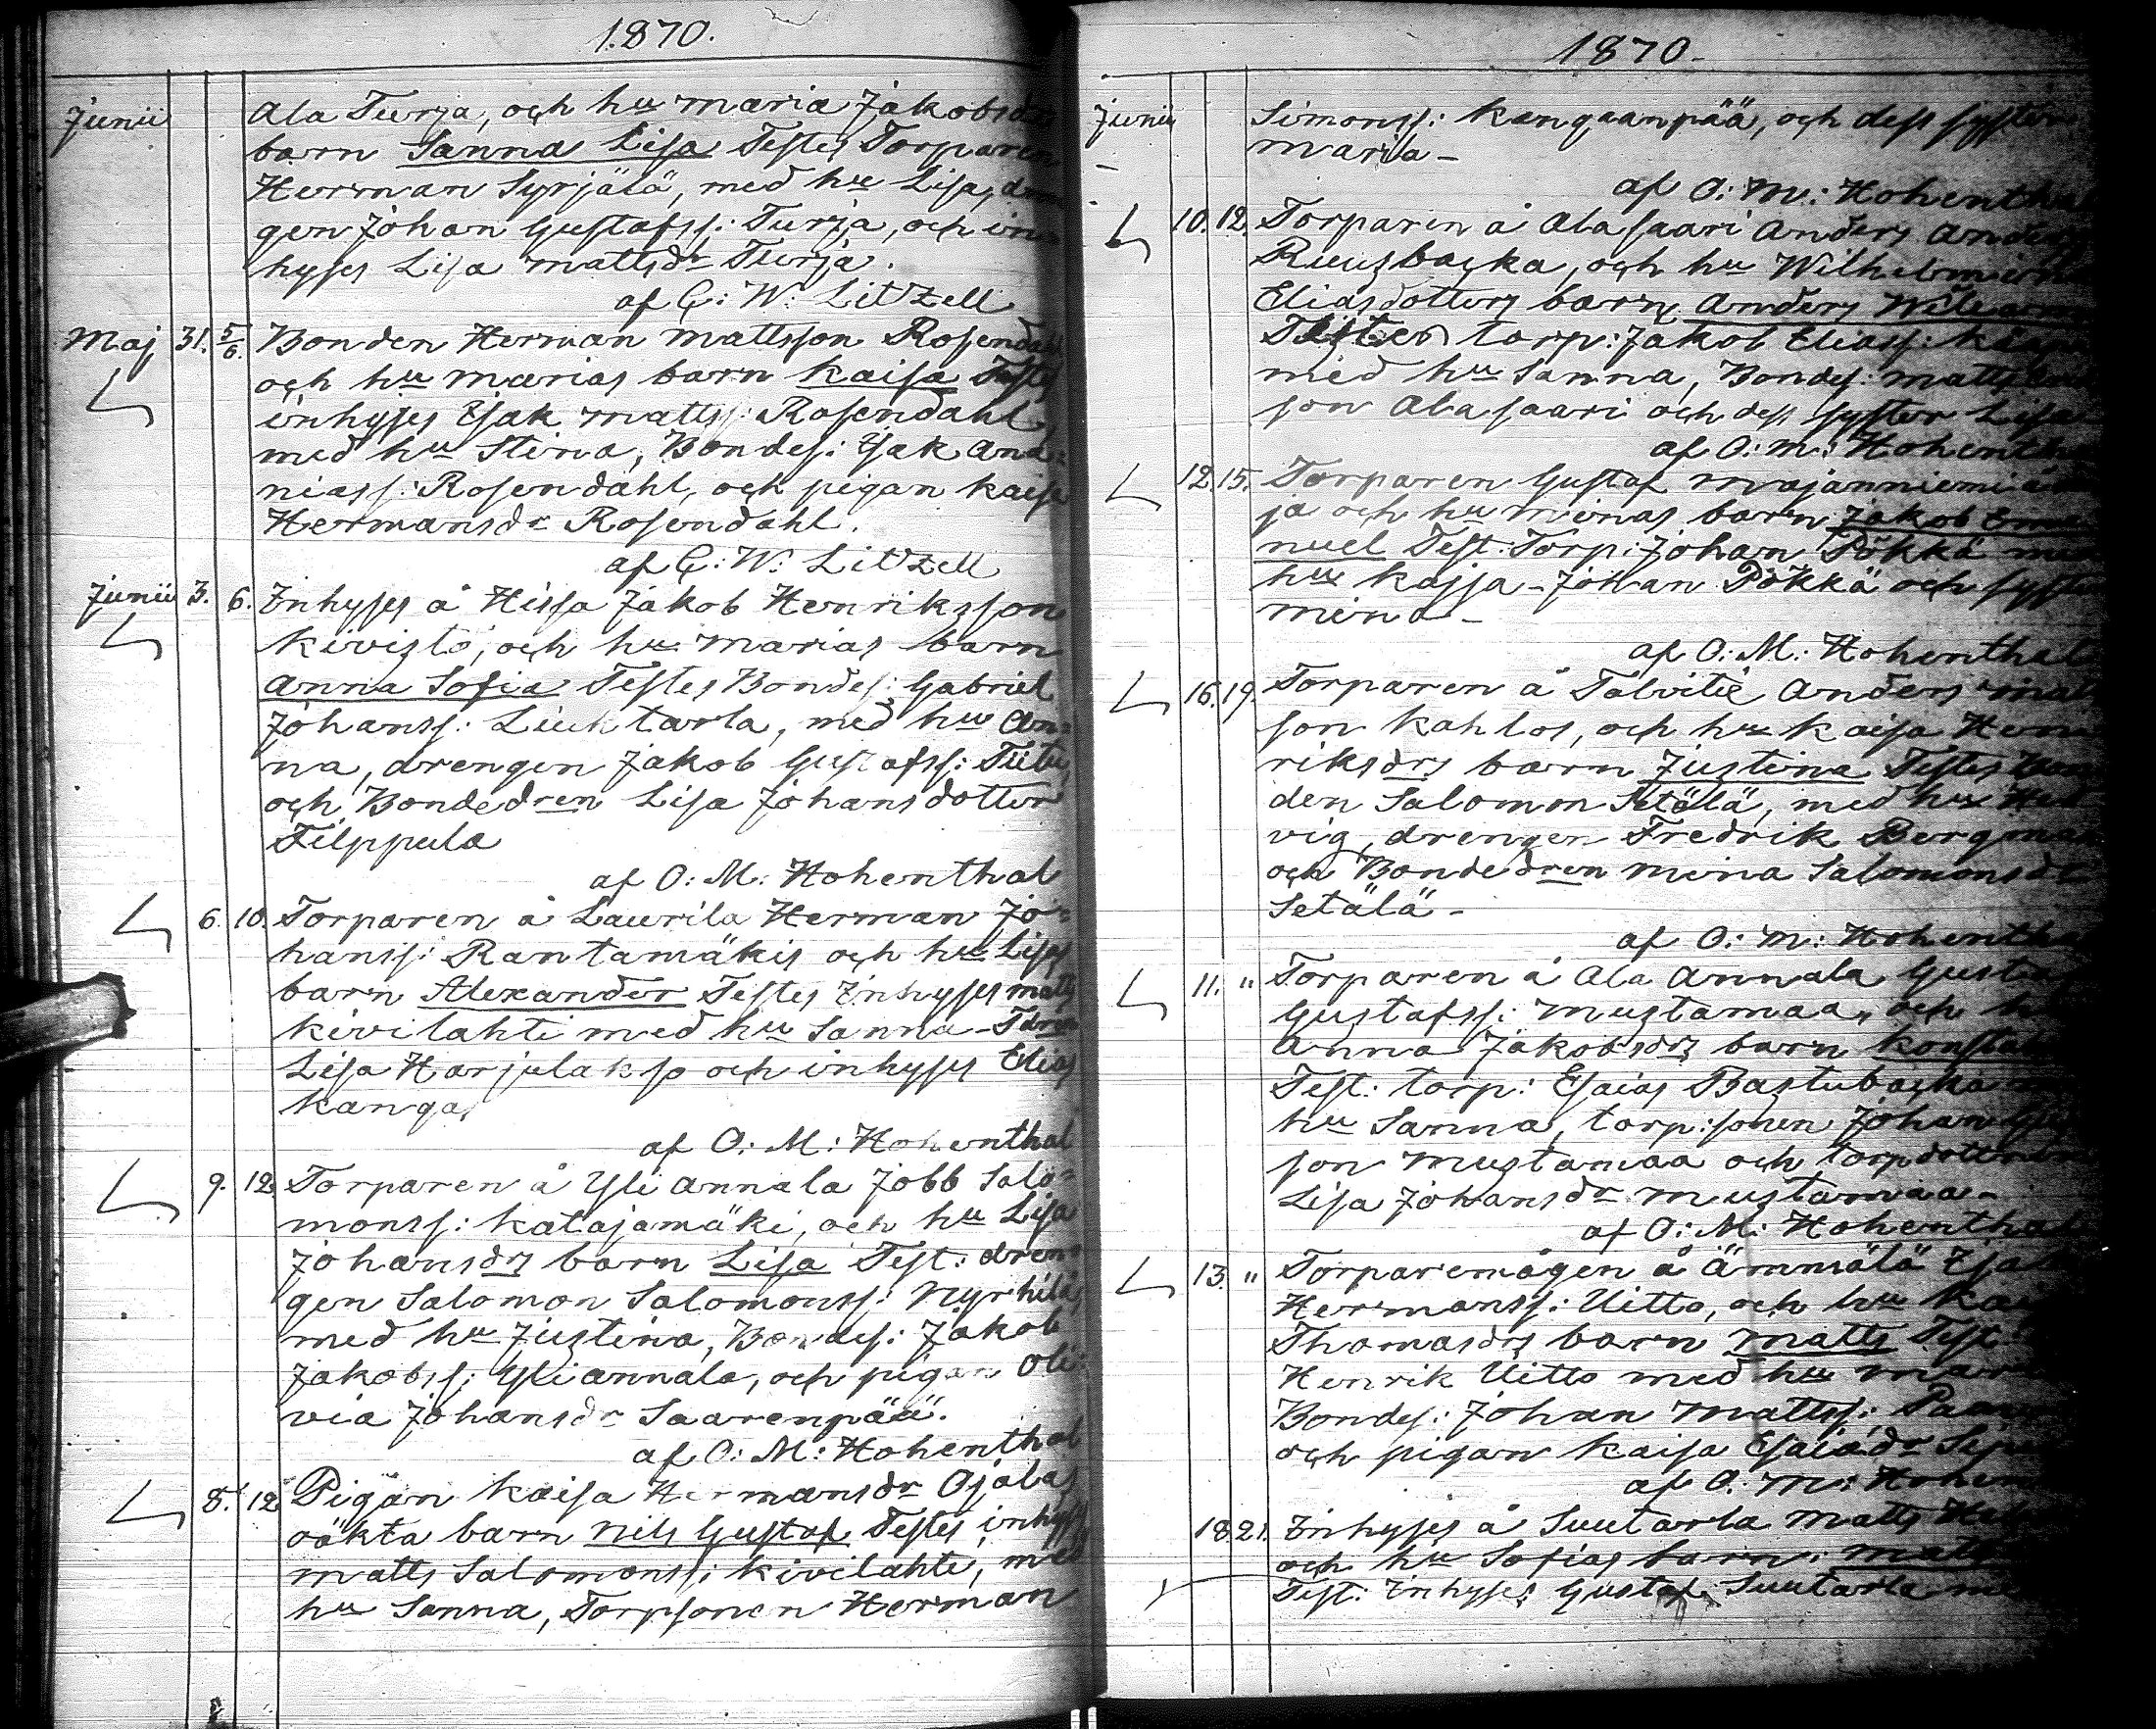 1870.
Junii Ala Turja, och hu Maria Jakobsdrs
barn Sanna Lisa Testes Torparen
Herman Syrjälä, med hu Lisa, dren-
gen Johan Gustafss: Turja, och in-
hyses Lisa Mattsdr Turja.
af C: W: Litzell
Maj 31. 5/6. Bonden Herman Mattsson Rosendahl
och hu Marias barn Kaisa Testes
inhyses Isak Mattss: Rosendahl
med hu Stina, Bondes: Isak Ana-
niass: Rosendahl, och pigan Kaisa
Hermansdr Rosendahl.
af C: W: Litzell
Junii 3. 6. Inhyses å Hissa Jakob Henriksson
Kivistö, och hu Marias barn
Anna Sofia Testes Bondes: Gabriel
Johanss: Liuhtarla, med hu An-
na, drengen Jakob Gustafss: Tiitus
och Bondedren Lisa Johansdotter
Filppula
af O: M: Hohenthal
6. 10. Torparen å Laurila Herman Jo-
hanss: Rantamäkis och hu Lisas
barn Alexander Testes Inhyses Matts
Kivilahti med hu Sanna - Tdren
Lisa Harjulakso och inhyses Elias
Kangas
af O: M: Hohenthal
9. 12. Torparen å Yli Annala Jobb Salo-
monss: Katajamäki, och hu Lisa
Johansdrs barn Lisa Test: dren-
gen Salomon Salomonss: Nyrhilä,
med hu Justina, Bondes: Jakob
Jakobss: Yliannala, och pigan Oli-
via Johansdr Saarenpää.
af O: M: Hohenthal
8. 12 Pigan Kaisa Hermansdr Ojalas
oäkta barn Nils Gustaf Testes inhyses
Matts Salomonss: Kivilahti, med
hu Sanna, Torpsonen Herman
1870.
Junii Simonss: Kangaanpää, och dess syster
Maria -
af O: M: Hohenthal
10. 12. Torparen å Alasaari Anders Anders
Ruusbacka, och hu Wilhelmina
Eliasdotters barn Anders
Testes torp: Jakob Eliass:
med hu Sanna, Bondes: Matts
son Alasaari och dess syster Lisa
af O: M: Hohenthal
12. 15. Torparen Gustaf Majanniemi å
ja och hu Minas barn Jakob Ema-
nuel Test: Torp: Johan Pökkä med
hu Kajsa - Johan Pökkä och syster
Mina -
af O: M: Hohenthal
16. 19. Torparen å Talvitie Anders Matts
son Kahlos, och hu Kaisa Hen-
riksdrs barn Justina Testes Bon-
den Salomon Setälä, med hu Hed-
vig, drengen Fredrik Bergman
och Bondedren Mina Salomonsdr
Setälä -
af O: M: Hohenthal
11. " Torparen å Ala Annala Gustaf
Gustafss: Mustamaa, och hu
Anna Jakobsdrs barn
Test: torp: Esaias Bastubacka
hu Sanna, torp: sonen Johan
son Mustamaa och torpdottren
Lisa Johansdr Mustamaa -
af O: M: Hohenthal
13. " Torparemågen å Ämmälä Isak
Hermanss: Uitto, och hu
Thomasdrs barn Matts Test:
Henrik Uitto med hu Maria
Bondes: Johan Mattss:
och pigan Kaisa Esaiadr
af O: M: Hohenthal
18. 21. Inhyses å Suutarla Matts
och hu Sofias barn Matts
Test: Inhyses Gustaf Suutarla med